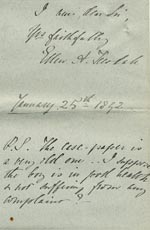 I am dear Sir,
Yrs faithfully,
Ellen A.
January 25th 1892.
P.S. The case-paper is
a very old one. I suppose
the boy is in good health
& not suffering from any
complaint?